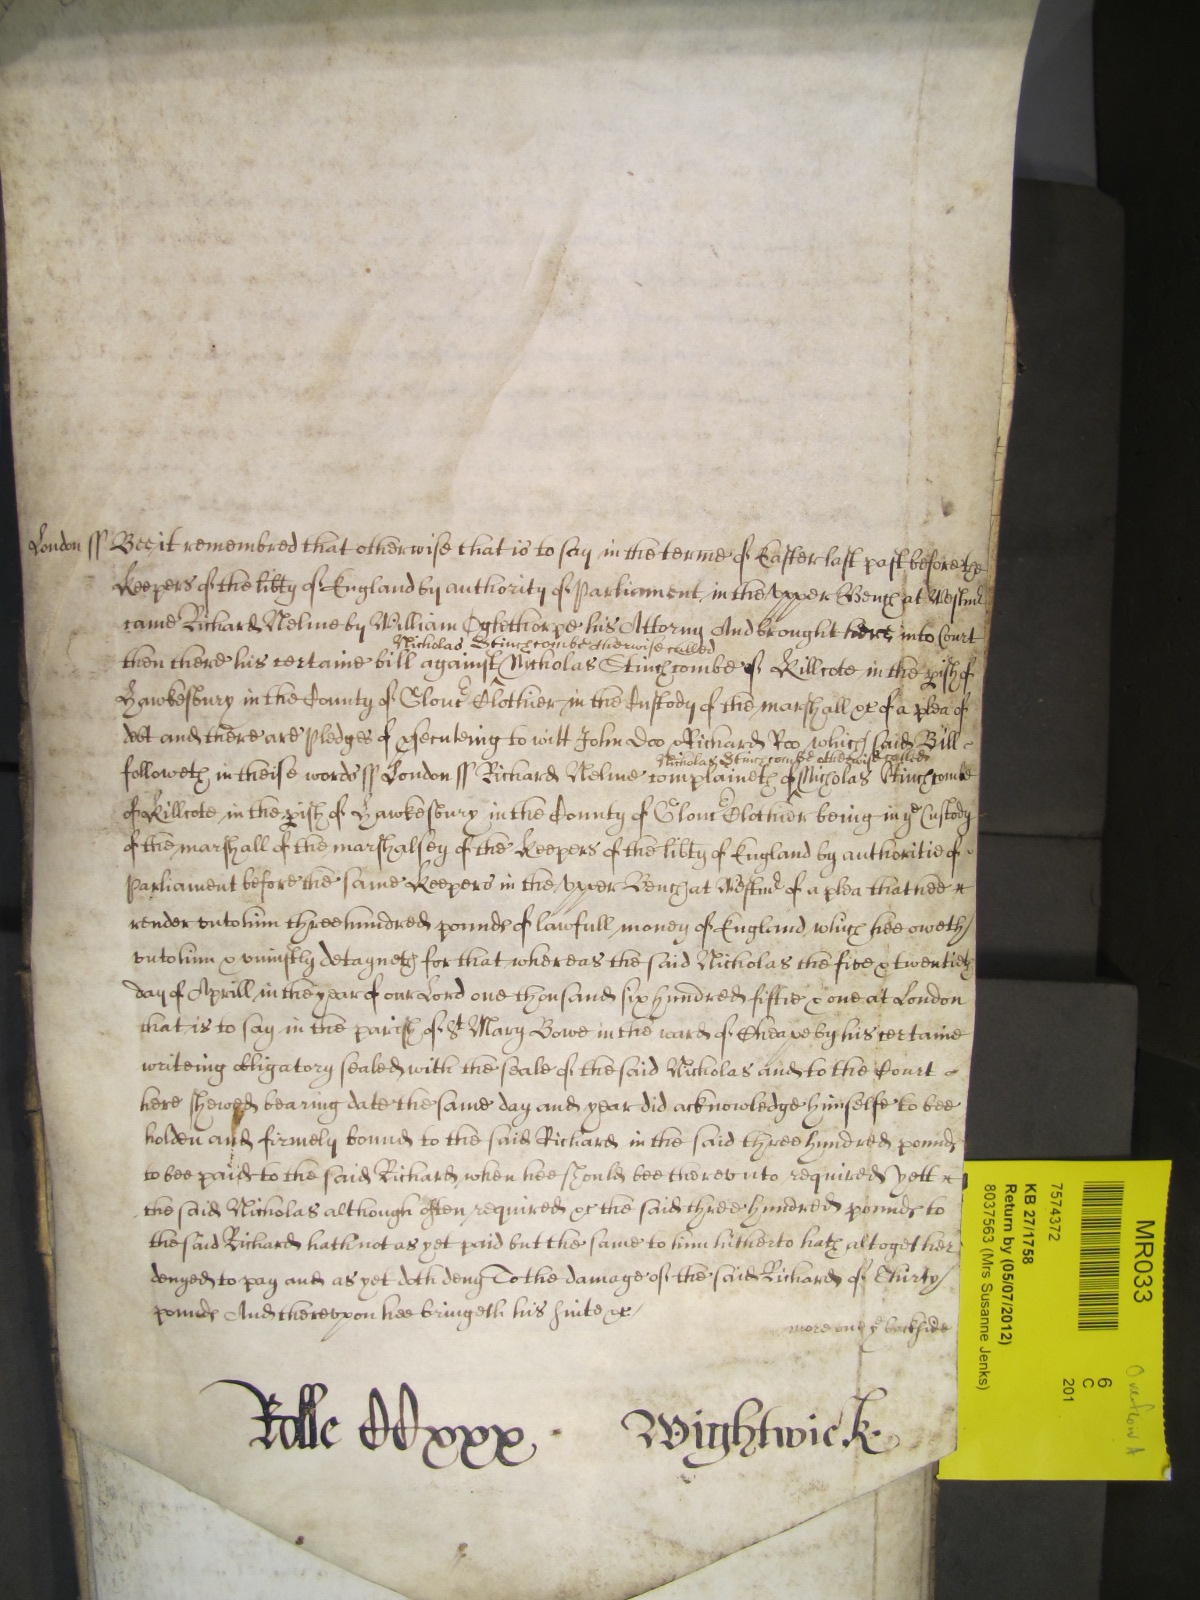 London ss Bee it remembred that otherwise that is to say in the terme of Easter last past before the
Keepers of the libty of England by authority of Parliament in the Upper Bench at Westmr
came Richard Nelme by William Oglethorpe his Attorny And brought here into Court
Nicholas Stinchcombe otherwise called
then there his certaine bill against Nicholas Stinchcombe of Killcote in the pish of
Hawkesbury in the County of Glouc Clothier in the Custody of the marshall &c of a plea of
debt and there are Pledges of psecuteing to witt John Doo & Richard Roo which said Bill
Nicholas Stinchcombe otherwise called
followeth in theise words ss London ss Richard Nelme complaineth of Nicholas Stinchcombe
of Killcote in the pish of Hawkesbury in the County of Glouc Clothier being in ye Custody
of the marshall of the marshalsey of the Keepers of the libty of England by authoritie of
Parliament before the same Keepers in the Upper Bench at Westmr of a plea that hee
render unto him three hundred pounds of lawfull money of England which hee oweth
unto him & uniustly detayneth for that whereas the said Nicholas the five & twentieth
day of Aprill in the year of our Lord one thousand six hundred fiftie & one at London
that is to say in the parish of St Mary Bowe in the ward of Cheape by his certaine
writeing obligatory sealed with the seale of the said Nicholas and to the Court
here shewed bearing date the same day and year did acknowledge himselfe to bee
holden and firmely bound to the said Richard in the said three hundred pounds
to bee paid to the said Richard when hee should bee thereunto required Yett
the said Nicholas although often required &c the said three hundred pounds to
the said Richard hath not as yet paid but the same to him hitherto hath altogether
denyed to pay and as yet doth deny To the damage of the said Richard of Thirty
pounds And thereupon hee bringeth his suite &c
more one ye backside
Rolle CCxxx Wightwick
MR033
6
C
201
7574372
KB 27/1758
Return by (05/07/2012)
8037563 (Mrs Susanne Jenks)
Overflow A